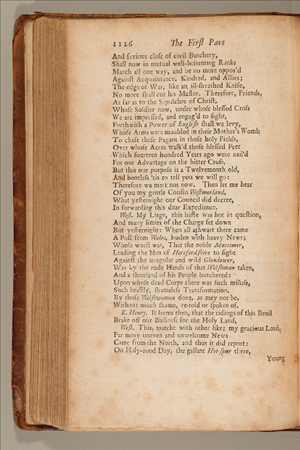 1126 The First Part
And furious close of civil Butchery,
Shall now in mutual well-beseeming Ranks
March all one way, and be no more oppos'd
Against Acquaintance, Kindred, and Allies;
The edge of War, like an ill-sheathed Knife,
No more shall cut his Master. Therefore, Friends,
As far as to the Sepulchre of Christ,
Whose Soldier now, under whose blessed Cross
We are impressed, and engag'd to fight,
Forthwith a Power of English shall we levy,
Whose Arms were moulded in their Mother's Womb
To chase these Pagans in those holy Fields,
Over whose Acres walk'd those blessed Feet
Which fourteen hundred Years ago were nail'd
For our Advantage on the bitter Cross,
But this our purpose is a Twelvemonth old,
And bootless 'tis to tell you we will go:
Therefore we meet not now. Then let me hear
Of you my gentle Cousin Westmorland,
What yesternight our Council did decree,
In forwarding this dear Expedience.
West. My Liege, this haste was hot in question,
And many limits of the Charge set down
But yesternight: When all athwart there came
A Post from Wales, loaden with heavy News;
Whose worst was, That the noble Mortimer,
Leading the Men of Herefordshire to fight
Against the irregular and wild Glendower,
Was by the rude Hands of that Welshman taken,
And a thousand of his People butchered:
Upon whose dead Corps there was such misuse,
Such beastly, shameless Transformation,
By those Welshwomen done, as may not be,
Without much shame, re-told or spoken of.
K. Henry. It seems then, that the tidings of this Broil
Brake off our Business for the Holy Land,
West. This, matcht with other like; my gracious Lord,
Far more uneven and unwelcome News
Came from the North, and thus it did report:
On Holy-rood Day, the gallant Hot-spur there,
Young